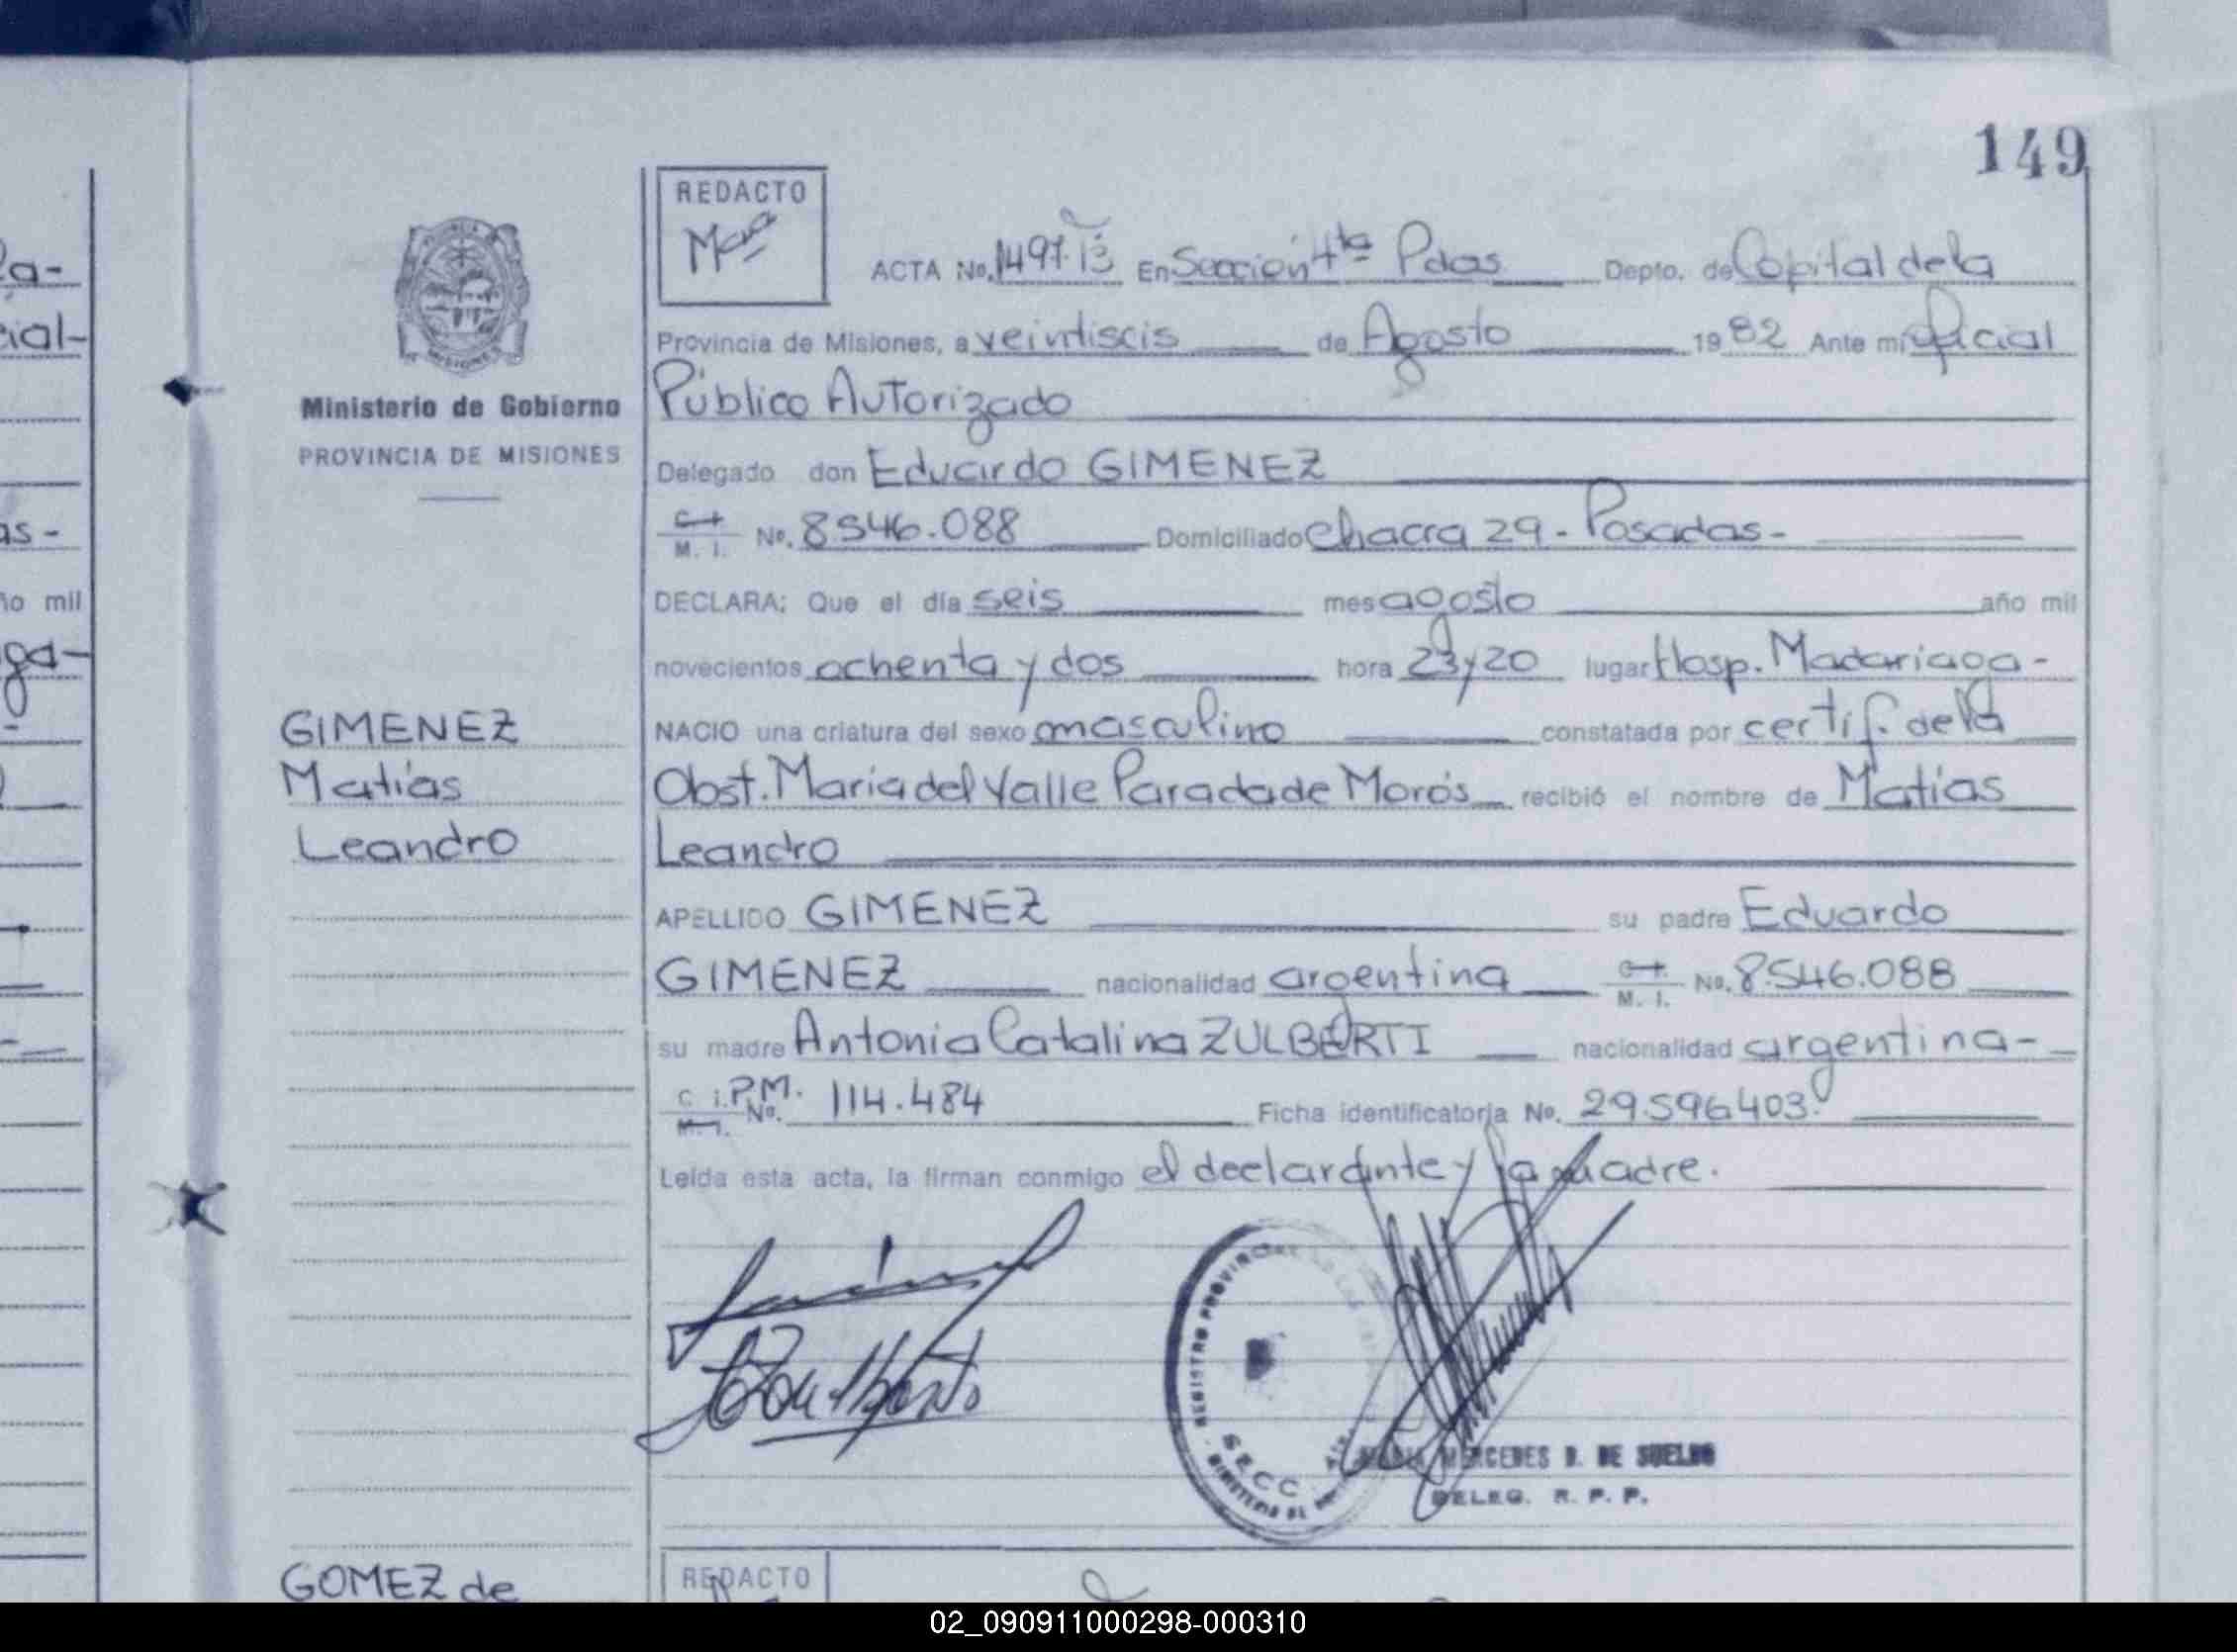 149
la-
REDACTO
ACTA No. 1497. En Sección 4ta Pdas Depto. de Capital de la
cial-
Provincia de Misiones, a veintiseis de Agosto 1982 Ante mi Oficial
Ministerio de Gobierno
Público Autorizado
PROVINCIA DE MISIONES
Delegado don Eduardo GIMENEZ
as-
M. I. No. 8546.088 Domiciliado Chacra 29 - Posadas -
ño mil
DECLARA: Que el día seis mes agosto año mil
ga-
novecientos ochenta y dos hora 23y20 lugar Hosp. Madariaga -
GIMENEZ
NACIO una criatura del sexo masculino constatada por certif. de la
Matías
Obst. Maria del Valle Parada de Morós recibió el nombre de Matías
Leandro
Leandro
APELLIDO GIMENEZ su padre Eduardo
GIMENEZ nacionalidad argentina M. I. No. 8.546.088
su madre Antonia Catalina ZULBERTI nacionalidad argentina -
C i. P.M. No. 114.484 Ficha identificatoria No. 29.596403.
M. I.
Leída esta acta, la firman conmigo el declarante y la madre.
REGISTRO PROVINCIAL
SECC
MINISTERIO DE
MARIA MERCEDES D. DE SUELDO
DELEG. R. P. P.
GOMEZ de
REDACTO
02_090911000298-000310